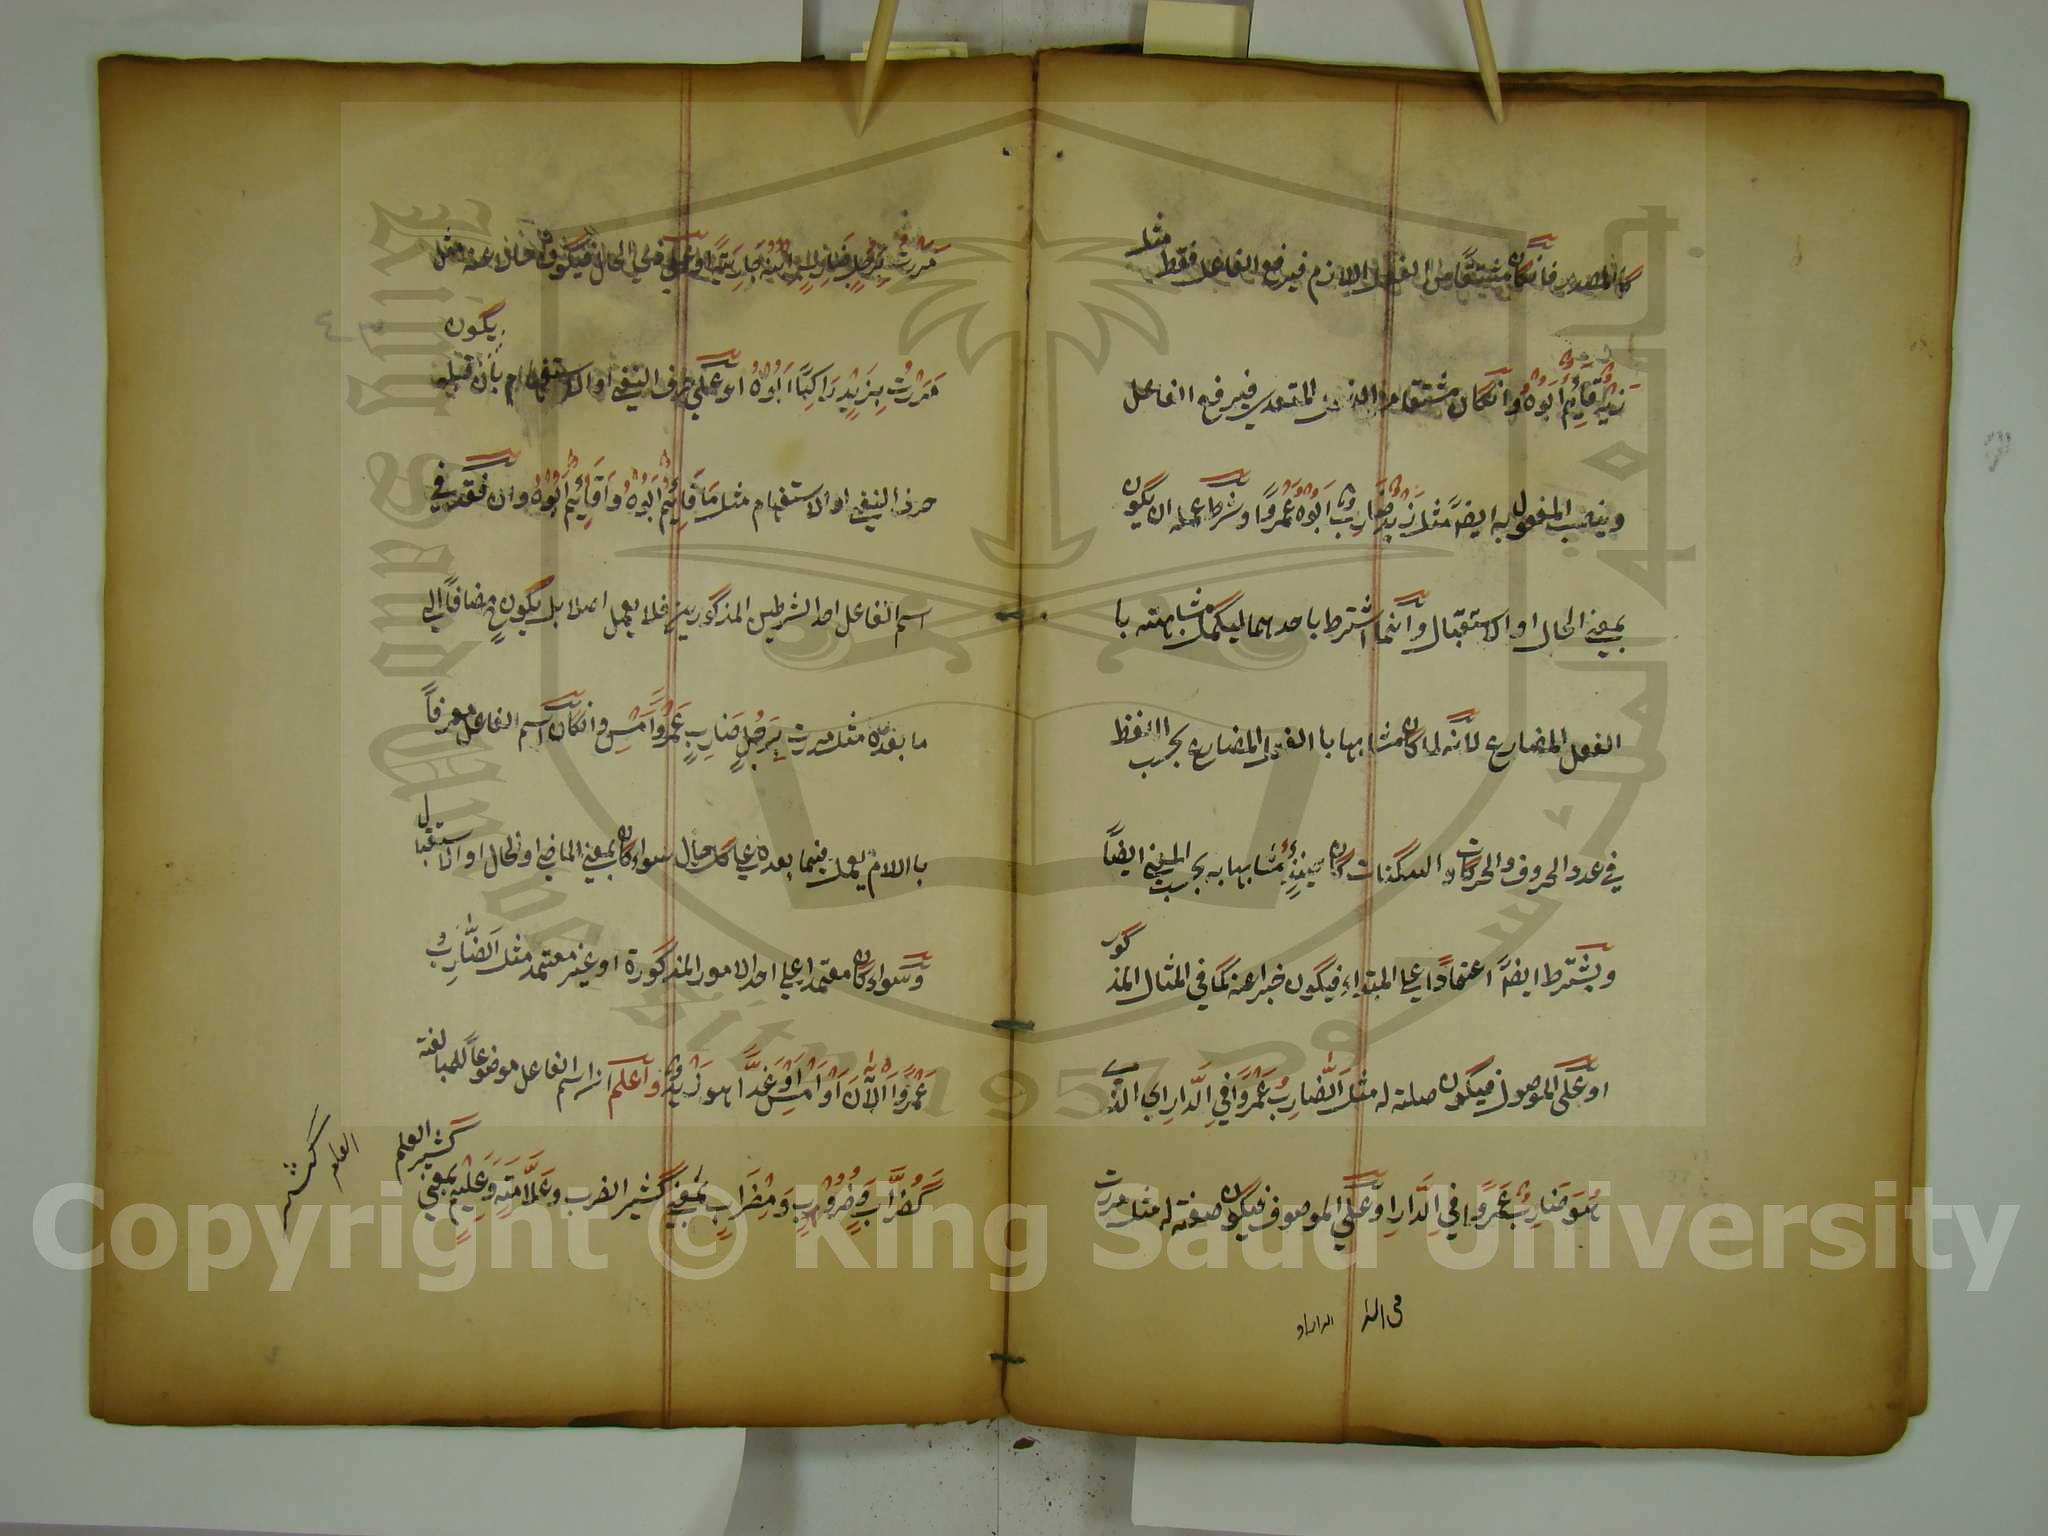 كالمصدر فانكان مشتقًا من الفعل اللازم فيرفع الفاعل فقط مثل
زَيْدٌ قَائِمٌ أَبُوْهُ وانكان مشتقا من الفعل المتعدي فيرفع الفاعل
وينصب المفعول به ايضًا مثل زَيْدٌ ضَارِبٌ اَبُوْهُ عَمْرًوا وشرط عمله ان يكون
بمعني الحال او الاستقبال وانّما اشترط باحدهما ليكمل مشابهته با
الفعل المضارع لانّه لما كان مشابها با الفعل المضارع بحسب اللفظ
في عدد الحروف والحركات والسكنات كان حينئذٍ مشابها به بحسب المعني ايضًا
ويشترط ايضًا اعتمادًا علي المبتداءِ فيكون خبرا عنه كما في المثال المذكور
او علَي الموصول فيكون صلته له مثل اَلضَّارِبُ عَمْرًوا فِي الدَّارِ اي الذي
هُوَ ضَارِبٌ عَمْرًوا فِي الدَّارِ او علَي الموصوف فيكون صفته له مثل مررت
في الدار الدار او
مَرَرْتُ بِرَجُلٍ ضَارِبٍ اِبْنُهُ جَارِيَةً او علي ذي الحال فيكون حالا عنه مثل
مَرَرْتُ بِزَيْدٍ رَاكِبًا اَبُوْهُ او علي حرف النفي او الاستفهام بان يكون قبله
حرف النفي او الاستفهام مثل مَا قَائِمٌ اَبُوْهُ وَاَقَائِمٌ اَبُوْهُ وان فقد في
اسم الفاعل احد الشرطين المذكورين فلا يعمل اصلا بل يكون مضافًا الي
ما بعده مثل مررت بِرَجُلٍ ضَارِبِ عَمْرٍو اَمْسِ وانكان اسم الفاعل معرفًا
با اللام يعمل فيما بعده علي كل حال سواء كان بمعني الماضي او الحال او الاستقبال
وسواء كان معتمدا علي احد الامور المذكورة او غير معتمد مثل اَلضَّارِبُ
عَمْرًوا اَلْآنَ اَوْ اَمْسِ اَوْ غَدًا هو زَيْدٌ واعلم ان اسم الفاعل موضوعًا للمبالغة
كَضَرَّابٍ وَضَرُوْبٍ وَمِضْرَابٍ بمعني كثير الضرب وعَلَّامَةٍ وَعَلِيْمٍ بمعني كثير العلم
العلم